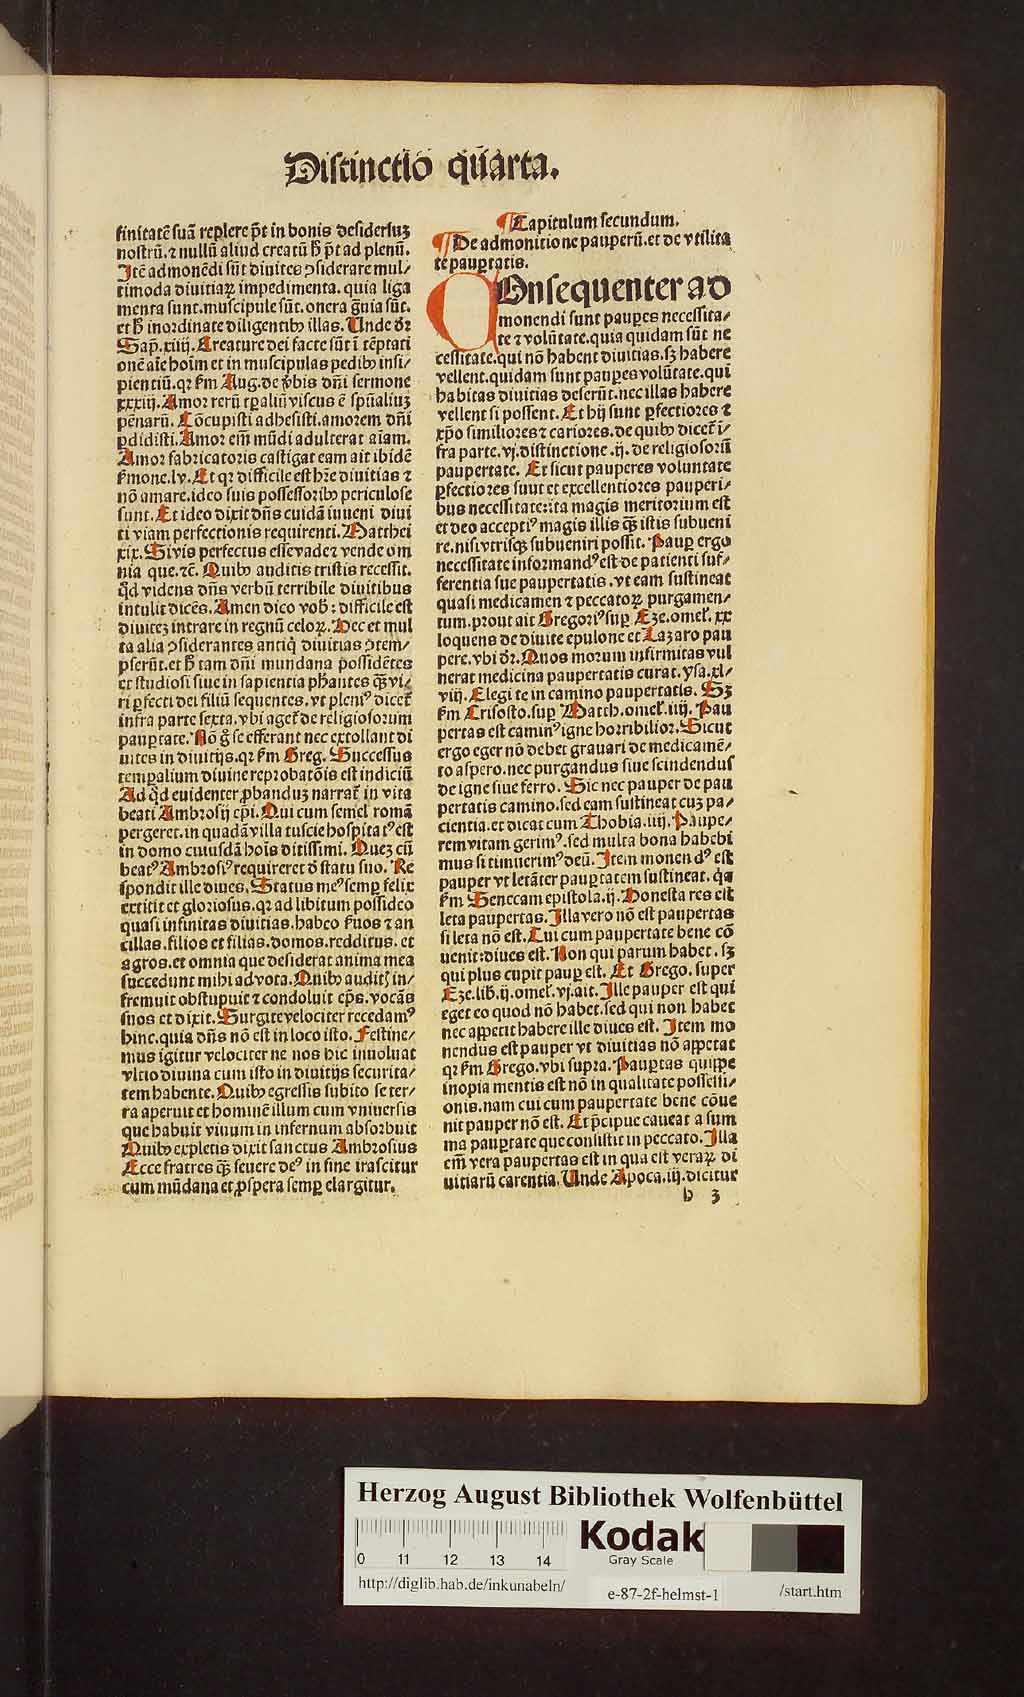 Distinctiō quarta.
finitatē suā replere pōt in bonis desideriuꝫ
nostrū. ⁊ nullū aliud creatū hͦ pōt ad plenū.
Itē admonēdi sūt diuites ↄsiderare mul⸗
timoda diuitiaꝝ impedimenta. quia liga
menta sunt. muscipule sūt. onera grauia sūt.
et hͦ inordinate diligentibꝰ illas. Unde dr̄
Sap. xiiij. Creature dei facte sūt ī tēptati
onē aīe hoīm et in muscipulas pedibꝰ insi⸗
pientiū. qꝛ ẜm Aug. de v̓bis dn̄i sermone
xxxiij. Amor rerū tꝑaliū viscus ē spūaliuꝫ
pēnarū. Cōcupisti adhesisti. amorem dn̄i
ꝑdidisti. Amor em̄ mūdi adulterat aīam.
Amor fabricatoris castigat eam ait ibidē
ẜmone. lv. Et qꝛ difficile est hr̄e diuitias ⁊
nō amare. ideo suis possessoribꝰ periculose
sunt. Et ideo dixit dn̄s cuidā iuueni diui
ti viam perfectionis requirenti. Matthei
xix. Si vis perfectus esse vade ⁊ vende om
nia que. ⁊c̄. Quibꝰ auditis tristis recessit.
qd̓ videns dn̄s verbū terribile diuitibus
intulit dicēs. Amen dico vob̓: difficile est
diuiteꝫ intrare in regnū celoꝝ. Hec et mul
ta alia ↄsiderantes antiq̓ diuitias ↄtem⸗
pserūt. et hͦ tam dn̄i mundana possidētes
et studiosi siue in sapientia phantes qꝫ vi⸗
ri ꝑfecti dei filiū sequentes. vt pleniꝰ dicet̓
infra parte sexta. vbi aget̓ de religiosorum
pauꝑtate. Nō g̓ se efferant nec extollant di
uites in diuitijs. qꝛ ẜm Greg. Successus
temꝑalium diuine reprobatōis est indiciū
Ad qd̓ euidenter ꝓbanduꝫ narrat̓ in vita
beati Ambrosij epi̅. Qui cum semel romā
pergeret. in quadā villa tuscie hospitatꝰ est
in domo cuiusdā hoīs ditissimi. Queꝫ cū
beatꝰ Ambrosiꝰ requireret d̓ statu suo. Re
spondit ille diues. Status meꝰ semꝑ felix
extitit et gloriosus. qꝛ ad libitum possideo
quasi infinitas diuitias. habeo ẜuos ⁊ an
cillas. filios et filias. domos. redditus. et
agros. et omnia que desiderat anima mea
succedunt mihi ad vota. Quibꝰ auditꝭ in⸗
fremuit obstupuit ⁊ condoluit ep̄s. vocās
suos et dixit. Surgite velociter recedamꝰ
hinc. quia dn̄s nō est in loco isto. Festine⸗
mus igitur velociter ne nos hic inuoluat
vltio diuina cum isto in diuitijs securita⸗
tem habente. Quibꝰ egressis subito se ter⸗
ra aperuit et hominē illum cum vniuersis
que habuit viuum in infernum absorbuit
Quibꝰ expletis dixit sanctus Ambrosius
Ecce fratres qꝫ seuere deꝰ in fine irascitur
cum mūdana et ꝓspera semꝑ elargitur.
¶ Capitulum secundum.
¶ De admonitione pauperū. et de vtilita
te pauꝑtatis.
COnsequenter ad
monendi sunt pauꝑes necessita⸗
te ⁊ volūtate. quia quidam sūt ne
cessitate. qui nō habent diuitias. sꝫ habere
vellent. quidam sunt pauꝑes volūtate. qui
habitas diuitias deserūt. nec illas habere
vellent si possent. Et hij sunt ꝑfectiores ⁊
xp̄o similiores ⁊ cariores. de quibꝰ dicet̓ i⸗
fra parte. vj. distinctione. ij. de religiosorū
paupertate. Et sicut pauperes voluntate
ꝑfectiores sunt et excellentiores pauperi⸗
bus necessitate: ita magis meritorium est
et deo acceptiꝰ magis illis qꝫ istis subueni
re. nisi vtrisqꝫ subueniri possit. Pauꝑ ergo
necessitate informandꝰ est de patienti suf⸗
ferentia sue paupertatis. vt eam sustineat
quasi medicamen ⁊ peccatoꝝ purgamen⸗
tum. prout ait Gregoriꝰ suꝑ Eze. omel̓. xx
loquens de diuite epulone et Lazaro pau
pere. vbi dr̄. Quos morum infirmitas vul
nerat medicina paupertatis curat. ysa. xl⸗
viij. Elegi te in camino paupertatis. Sꝫ
ẜm Crisosto. suꝑ Matth. omel̓. iiij. Pau
pertas est caminꝰ igne horribilior. Sicut
ergo eger nō debet grauari de medicamē⸗
to aspero. nec purgandus siue scindendus
de igne siue ferro. Sic nec pauper de pau
pertatis camino. sed eam sustineat cuꝫ pa⸗
cientia. et dicat cum Thobia. iiij. Paupe⸗
rem vitam gerimꝰ. sed multa bona habebi
mus si timuerimꝰ deū. Item monendꝰ est
pauper vt letāter pauꝑtatem sustineat. q̓a
ẜm Senecam epistola. ij. Honesta res est
leta paupertas. Illa vero nō est paupertas
si leta nō est. Cui cum paupertate bene cō
uenit: diues est. Non qui parum habet. sꝫ
qui plus cupit pauꝑ est. Et Grego. super
Eze. lib̓. ij. omel̓. vj. ait. Ille pauper est qui
eget eo quod nō habet. sed qui non habet
nec appetit habere ille diues est. Item mo
nendus est pauper vt diuitias nō appetat
qꝛ ẜm Grego. vbi supra. Pauꝑtas quippe
inopia mentis est nō in qualitate possessi⸗
onis. nam cui cum paupertate bene cōue
nit pauper nō est. Et p̄cipue caueat a sum
ma pauꝑtate que consistit in peccato. Illa
em̄ vera paupertas est in qua est veraꝝ di
uitiarū carentia. Unde Apoca. iij. dicitur
b 3
Herzog August Bibliothek Wolfenbüttel
Kodak
Gray Scale
0 11 12 13 14
http://diglib.hab.de/inkunabeln/
e-87-2f-helmst-1
/start.htm